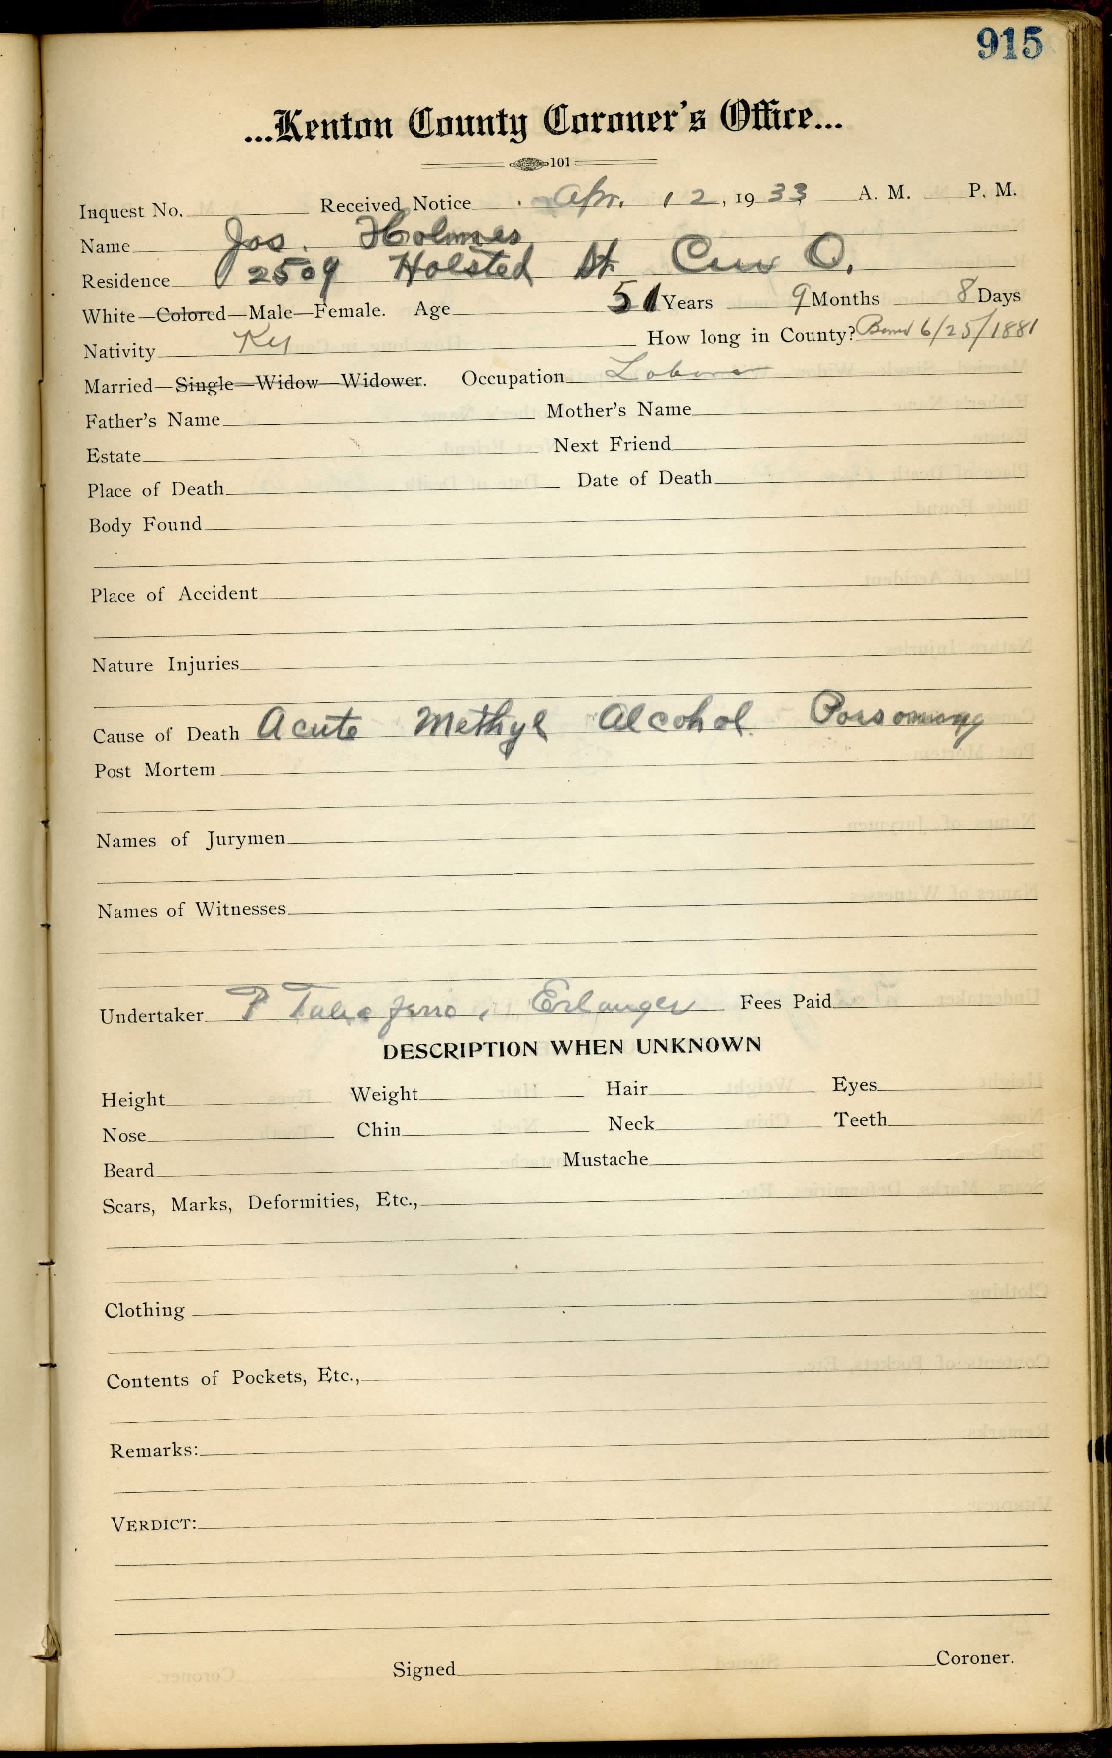 915
...Kenton County Coroner's Office...
101
Inquest No. Received Notice Apr. 12, 1933 A. M. P. M.
Name Jos. Holmes
Residence 2509 Holsted St. Cin O.
White—Colored—Male—Female. Age 51 Years 9 Months 8 Days
Nativity Ky How long in County? Born 6/25/1881
Married—Single—Widow—Widower. Occupation Laborer
Father's Name Mother's Name
Estate Next Friend
Place of Death Date of Death
Body Found
Place of Accident
Nature Injuries
Cause of Death Acute Methyl Alcohol Poisoning
Post Mortem
Names of Jurymen
Names of Witnesses
Undertaker Taliaferro, Erlanger Fees Paid
DESCRIPTION WHEN UNKNOWN
Height Weight Hair Eyes
Nose Chin Neck Teeth
Beard Mustache
Scars, Marks, Deformities, Etc.,
Clothing
Contents of Pockets, Etc.,
Remarks:
VERDICT:
Signed Coroner.